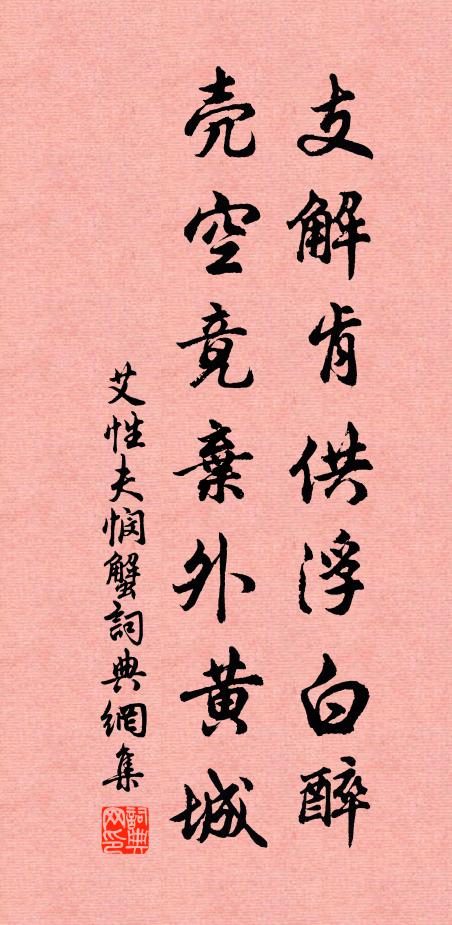 支解肯供浮白醉
壳空竟棄外黄城
艾性夫悯蟹詞典網集
詞典网印